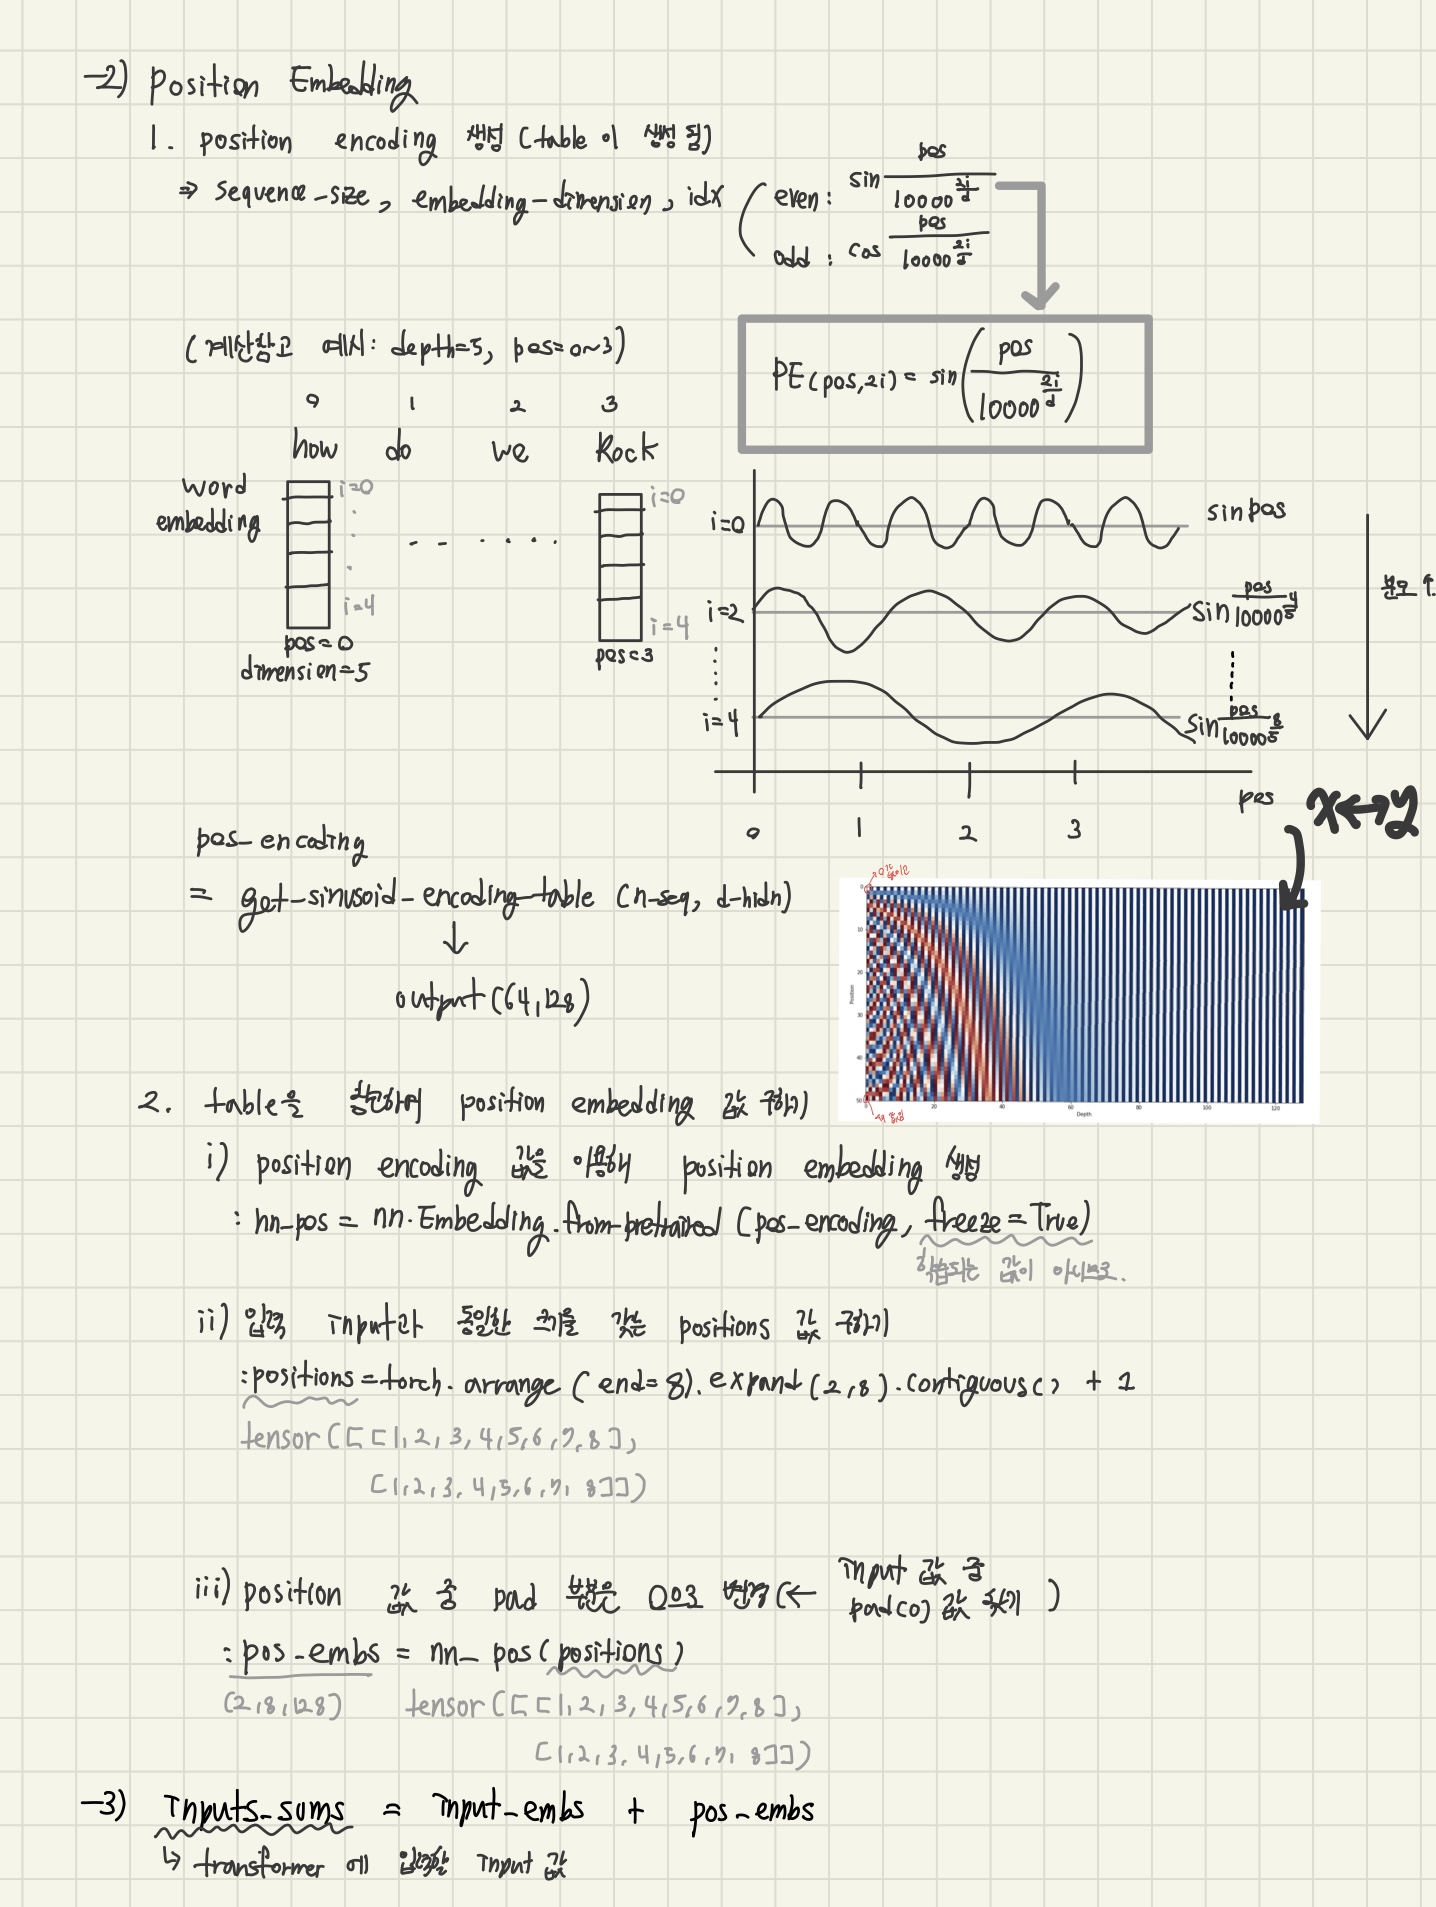 -2) Position Embedding
1. position encoding 생성 (table이 생성 됨)
⇒ sequence-size, embedding-dimension, idx
even: sin pos / 10000^(2i/d)
odd : cos pos / 10000^(2i/d)
(계산참고 예시: depth=5, pos=0~3)
PE(pos,2i) = sin(pos / 10000^(2i/d))
0 1 2 3
how do we Rock
word embedding
i=0
i=4
pos=0
dimension=5
.....
i=0
i=4
pos=3
i=0 sin pos
i=2 sin pos / 10000^(4/5)
i=4 sin pos / 10000^(8/5)
분모 ↑
0 1 2 3 pos
X↔Y
pos_encoding
= get_sinusoid_encoding_table (n-seq, d-hidn)
↓
output (64,128)
Position
0
10
20
30
40
50
0 20 40 60 80 100 120
Depth
2. table을 참고하여 position embedding 값 구하기
i) position encoding 값을 이용해 position embedding 생성
: nn_pos = nn.Embedding.from_pretrained (pos_encoding, freeze=True)
학습되는 값이 아니므로.
ii) 입력 input과 동일한 크기를 갖는 positions 값 구하기
:positions = torch.arrange (end=8).expand (2,8).contiguous() + 1
tensor([[1,2,3,4,5,6,7,8],
[1,2,3,4,5,6,7,8]])
iii) position 값 중 pad 부분은 0으로 변경 (← input 값 중 pad(0) 값 찾기 )
: pos_embs = nn_pos (positions)
(2,8,128) tensor([[1,2,3,4,5,6,7,8],
[1,2,3,4,5,6,7,8]])
-3) Inputs_sums = input_embs + pos_embs
↳ transformer에 입력할 input 값